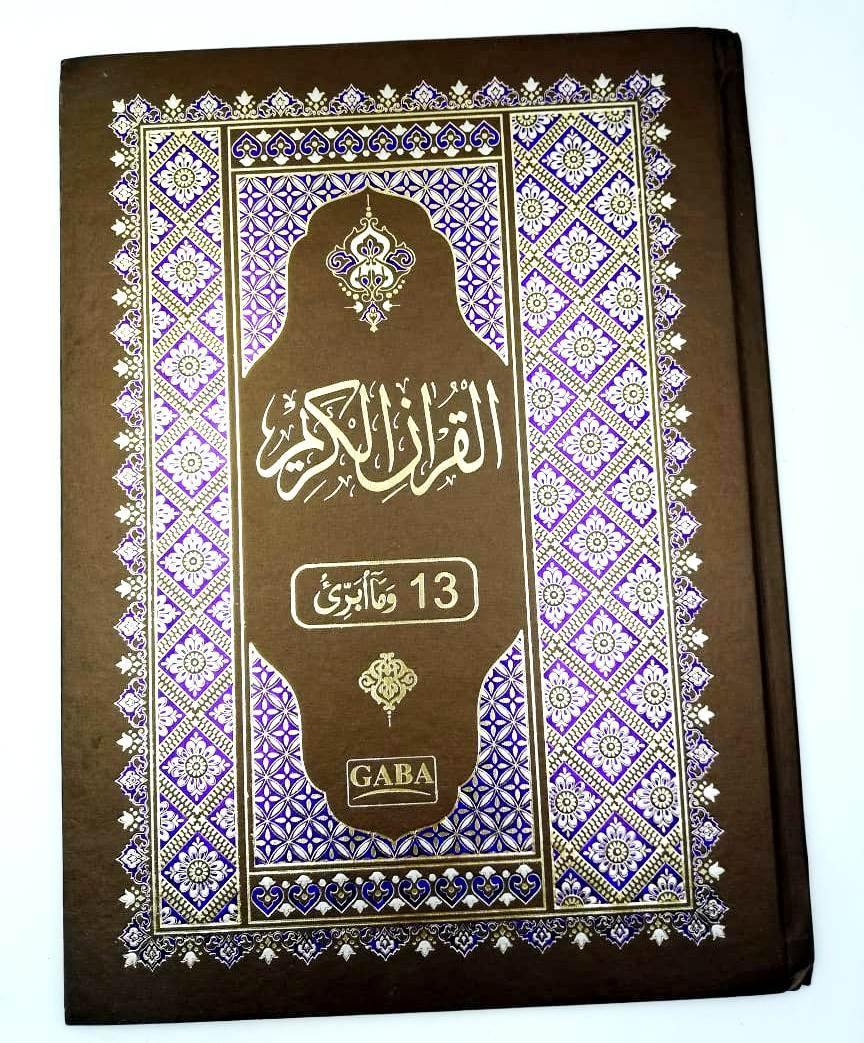 القرآن الكریم
13 وَمَآ أُبَرِّئُ
GABA